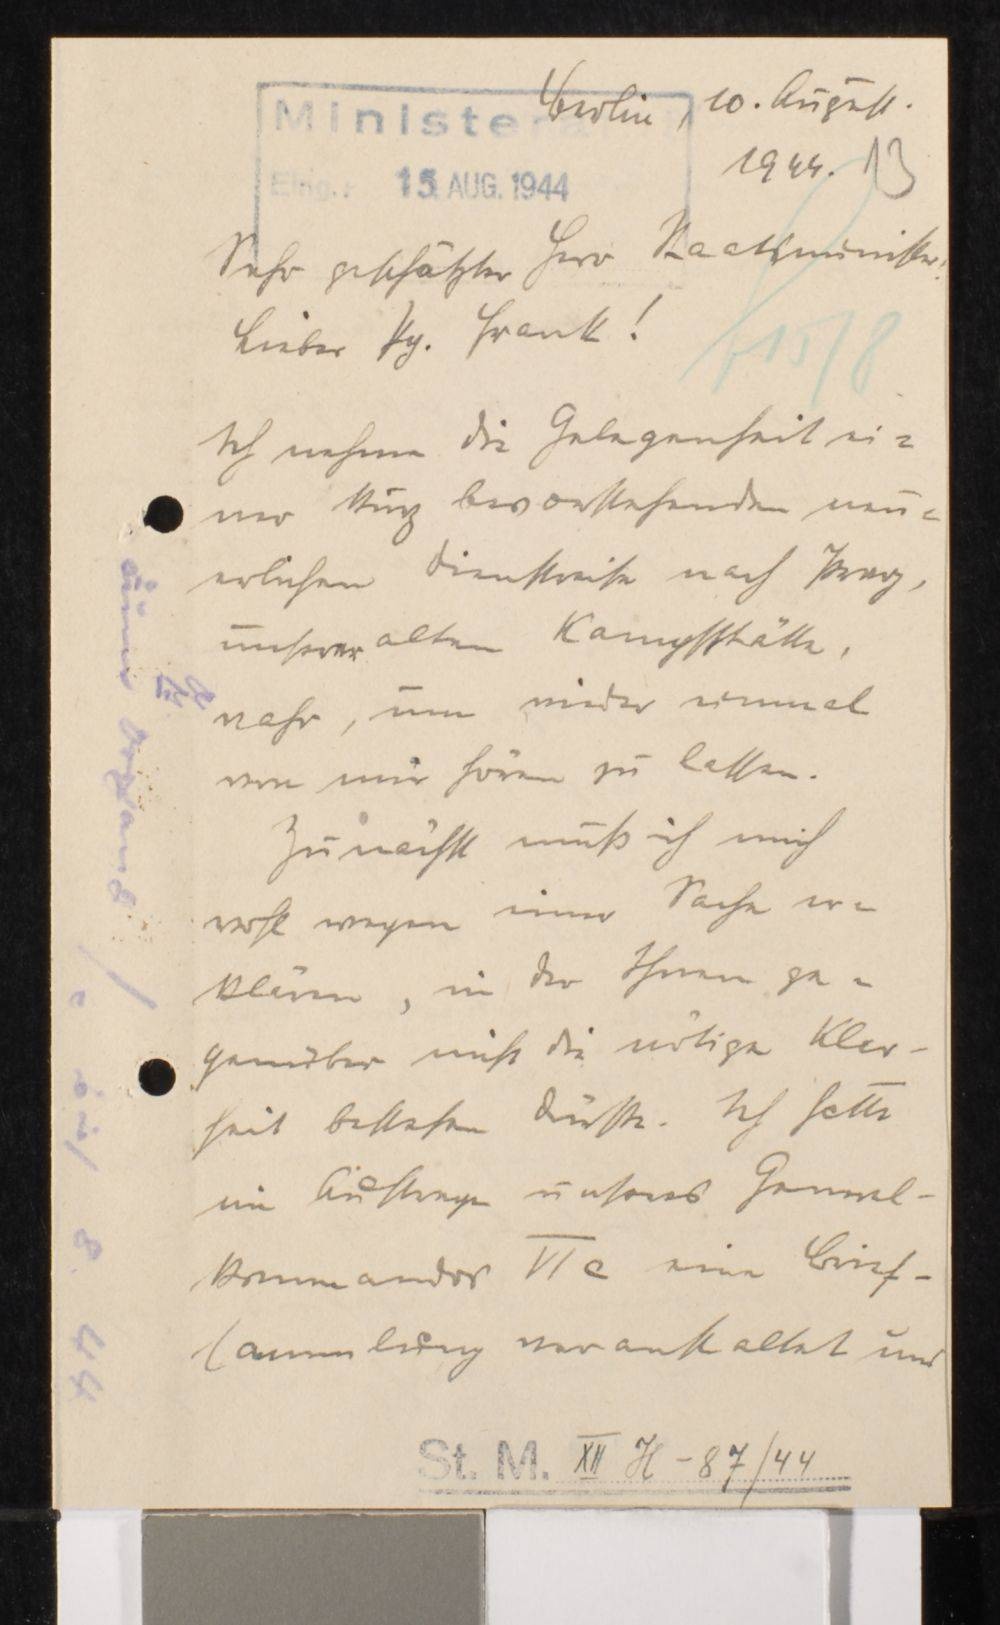 Ministera
Berlin, 10. August.
1944. 13
Eing.: 15. AUG. 1944
Sehr geschätzter Herr Staatsminister!
Lieber Pg. Frank!
15/8
Ich nehme die Gelegenheit ei=
ner kurz bevorstehenden neu=
erlichen Dienstreise nach Prag,
unserer alten Kampfstätte,
wahr, um wieder einmal
von mir hören zu lassen.
Zunächst muß ich mich
wohl wegen einer Sache er=
klären, in der Ihnen ge=
genüber nicht die nötige Klar-
heit bestehen dürfte. Ich hatte
im Auftrage unseres General-
kommandos VI c eine Brief-
sammlung veranstaltet und
St. M. XII H - 87/44
8. 44